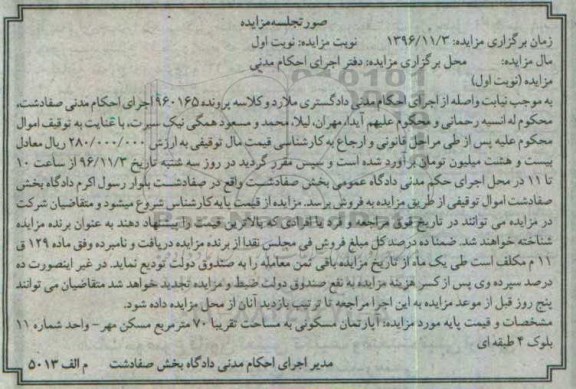 صورتجلسه مزایده
زمان برگزاری مزایده: ۱۳۹۶/۱۱/۳ نوبت مزایده: نوبت اول
مال مزایده: محل برگزاری مزایده: دفتر اجرای احکام مدنی
مزایده (نوبت اول)
به موجب نیابت واصله از اجرای احکام مدنی دادگستری ملارد و کلاسه پرونده ۹۶۰۱۶۵ اجرای احکام مدنی صفادشت،
محکوم له انسیه رحمانی و محکوم علیهم آیدا، مهران، لیلا، محمد و مسعود همگی نیک سیرت، با عنایت به توقیف اموال
محکوم علیه پس از طی مراحل قانونی و ارجاع به کارشناسی قیمت مال توقیفی به ارزش ۲۸۰/۰۰۰/۰۰۰ ریال معادل
بیست و هشت میلیون تومان برآورد شده است و سپس مقرر گردید در روز سه شنبه تاریخ ۹۶/۱۱/۳ از ساعت ۱۰
تا ۱۱ در محل اجرای حکم مدنی دادگاه عمومی بخش صفادشت واقع در صفادشت بلوار رسول اکرم دادگاه بخش
صفادشت اموال توقیفی از طریق مزایده به فروش برسد. مزایده از قیمت پایه کارشناس شروع میشود و متقاضیان شرکت
در مزایده می توانند در تاریخ فوق مراجعه و فرد یا افرادی که بالاترین قیمت را پیشنهاد دهند به عنوان برنده مزایده
شناخته خواهند شد. ضمنا ده درصد کل مبلغ فروش فی مجلس نقدا از برنده مزایده دریافت و نامبرده وفق ماده ۱۲۹ ق
۱۱ م مکلف است طی یک ماه از تاریخ مزایده باقی ثمن معامله را به صندوق دولت تودیع نماید. در غیر اینصورت ده
درصد سپرده وی پس از کسر هزینه مزایده به نفع صندوق دولت ضبط و مزایده تجدید خواهد شد متقاضیان می توانند
پنج روز قبل از موعد مزایده به این اجرا مراجعه تا ترتیب بازدید آنان از محل مزایده داده شود.
مشخصات و قیمت پایه مورد مزایده: آپارتمان مسکونی به مساحت تقریبا ۷۰ متر مربع مسکن مهر- واحد شماره ۱۱
بلوک ۴ طبقه ای
مدیر اجرای احکام مدنی دادگاه بخش صفادشت م الف ۵۰۱۳